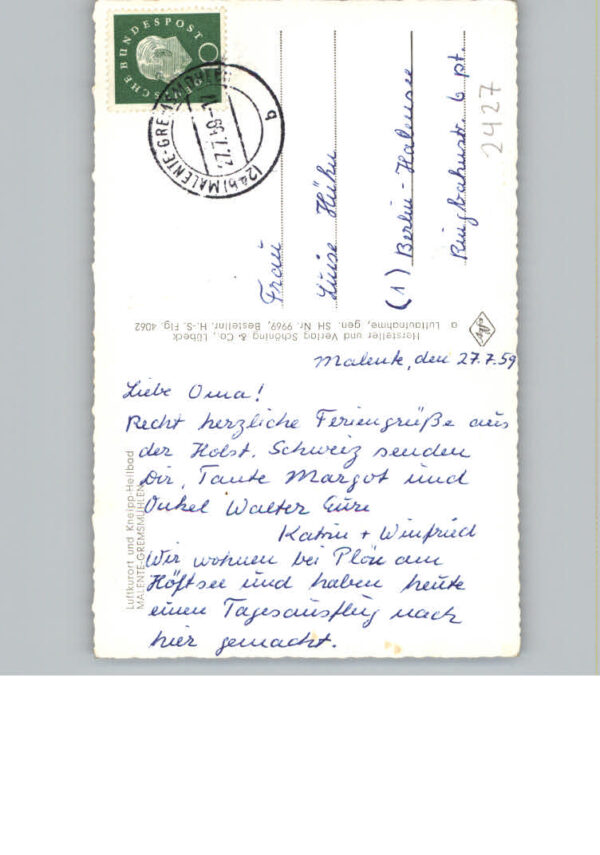 DEUTSCHE BUNDESPOST
(24b) MALENTE-GREMSMÜHLEN
27.7.59
b
Frau
Luise Hühn
(1) Berlin-Halensee
Ringbahnstr. 6 pt.
2427
Hersteller und Verlag Schöning & Co., Lübeck
a Luftaufnahme, gen. SH Nr. 9969, Bestellnr. H.-S. Flg. 4062
Luftkurort und Kneipp-Heilbad
MALENTE-GREMSMÜHLEN
Malente, den 27.7.59
Liebe Oma!
Recht herzliche Feriengrüße aus
der Holst. Schweiz senden
Dir, Tante Margot und
Onkel Walter Eure
Katrin + Winfried
Wir wohnen bei Plön am
Höftsee und haben heute
einen Tagesausflug nach
hier gemacht.